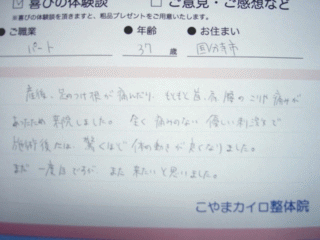 ☑喜びの体験談 □ご意見・ご感想など
※喜びの体験談を頂きますと、粗品プレゼントをご用意いたします。
●ご職業 ●年齢 ●お住まい
パート 37 歳 国分寺市
産後、足のつけ根が痛んだり、もともと首、肩、腰のこりや痛みが
あったため来院しました。全く痛みのない優しい刺激で
施術後には、驚くほど体の動きが良くなりました。
まだ一度目ですが、また来たいと思いました。
こやまカイロ整体院